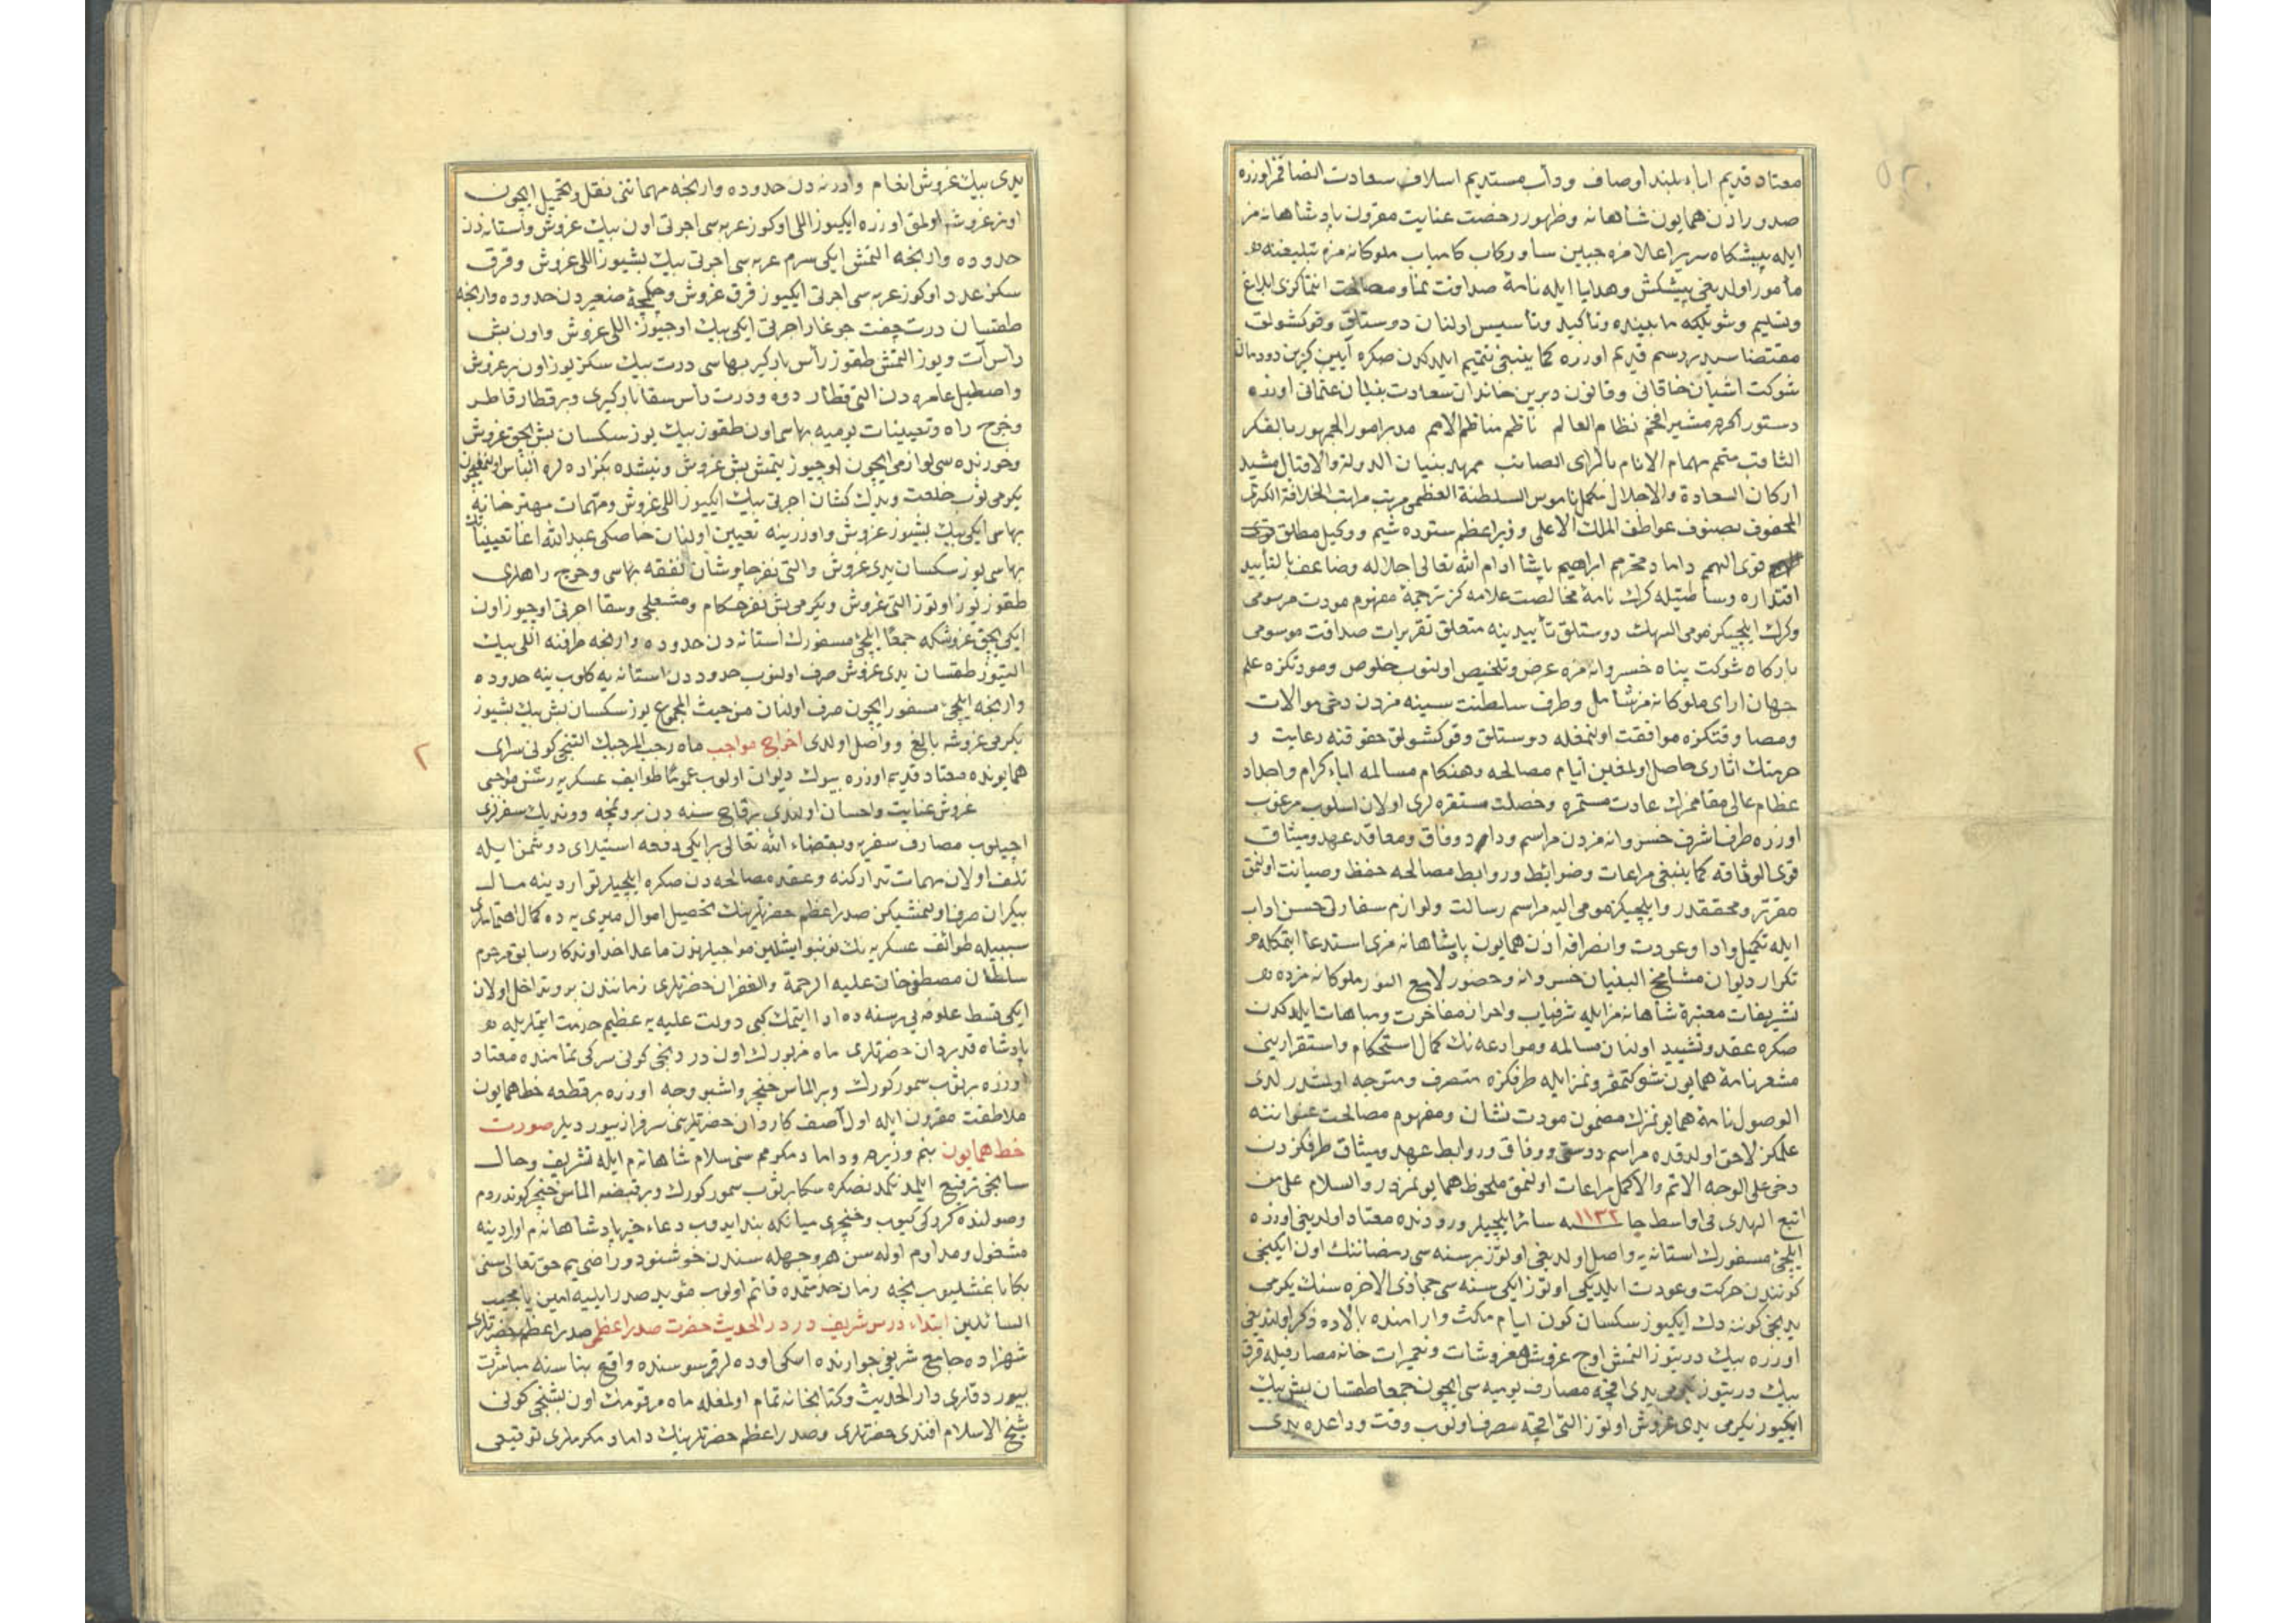 معتاد قديم اباء بلند اوصاف ودأب مستديم اسلاف سعادت اتصافمز اوزره
صدور اذن همايون شاهانه وظهور رخصت عنايت مقرون پادشاهانه مز
ايله پيشكاه سرير اعلامزه جبين سا وركاب كامياب ملوكانه مزه تبليغنه
مأمور اولديغى پيشكش وهدايا ايله نامهٔ صداقت نما ومصالحت انتماكزى ابلاغ
وتسليم وشويلكه مابينده وتأكيد وتأسيس اولنان دوستلق وقوكشولق
مقتضاسيدر رسم قديم اوزره كما ينبغى تتميم ايلدكدن صكره آيين كزين دودمان
شوكت اشيان خاقانى وقانون ديرين خاندان سعادت بنيان عثمانى اوزره
دستور اكرم مشير افخم نظام العالم ناظم مناظم الامم مدبر امور الجمهور بالفكر
الثاقب متمم مهام الانام بالراى الصائب ممهد بنيان الدولة والاقبال مشيد
اركان السعادة والاجلال مكمل ناموس السلطنة العظمى مرتب مراتب الخلافة الكبرى
المحفوف بصنوف عواطف الملك الاعلى وزير اعظم ستوده شيم ووكيل مطلق
قوى الهمم داماد محترمم ابراهيم پاشا ادام الله تعالى اجلاله وضاعف بالتأييد
اقتداره وساطتيله كرك نامهٔ مخالصت علامه كز ترجمهٔ مفهوم مودت مرسومى
وكرك ايلچيكز مومى اليهك دوستلق تأييدينه متعلق تقريرات صداقت موسومى
باركاه شوكت پناه خسروانه مزه عرض وتلخيص اولنوب خلوص ومودتكزه علم
جهان اراى ملوكانه مز شامل وطرف سلطنت سنيه مزدن دخى موالات
ومصادقتكزه موافقت اولنمغله دوستلق وقوكشولق حقوقنه رعايت و
حرمتك اثارى حاصل اولمغين ايام مصالحه وهنكام مسالمه اباء كرام واجداد
عظام عالى مقاممزك عادت مستمره وخصلت مستقره لرى اولان اسلوب مرغوب
اوزره طرف اشرف خسروانه مزدن مراسم وداد ووفاق ومعاقد عهد وميثاق
قوى الوثاقه كما ينبغى مراعات وضوابط وروابط مصالحه حفظ وصيانت اولنمق
مقرر ومحققدر وايلچيكز مومى اليه مراسم رسالت ولوازم سفارتى حسن اداب
ايله تكميل وادا وعودت وانصرافه اذن همايون پادشاهانه مزى استدعا ايتمكله
تكرار ديوان مشامخ البنيان خسروانه وحضور لامع النور ملوكانه مزده
تشريفات معتبرهٔ شاهانه مز ايله شرفياب واحراز مفاخرت ومباهات ايلدكدن
صكره عقد وتشييد اولنان مسالمه وموادعه نك كمال استحكام واستقرارينى
مشعر نامهٔ همايون شوكتمقرونمز ايله طرفكزه منصرف ومتوجه اولمشدر لدى
الوصول نامهٔ همايونمزك مضمون مودت نشان ومفهوم مصالحت عنواننه
علمكز لاحق اولدقده مراسم دوستى ووفاق وروابط عهد وميثاق طرفكزدن
دخى على الوجه الاتم والاكمل مراعات اولنمق ملحوظ همايونمزدر والسلام على من
اتبع الهدى فى اواسط جا ١١٣٢ سنه سائر ايلچيلر ورودنده معتاد اولدينى اوزره
ايلچئ مسفورك استانه يه واصل اولديغى اوتوز بر سنه سى رمضاننك اون ايكنجى
كونندن حركت وعودت ايلديكى اوتوز ايكى سنه سى جماذى الاخره سنك يكرمى
يدنجى كوننه دك ايكيوز سكسان كون ايام مكث وارامنده بالاده ذكر اولنديغى
اوزره بيك درتيوز التمش اوچ غروش مفروشات وتعميرات خانه مصارفيله قرق
بيك درتيوز يكرمى يدى اقچه مصارف يوميه سى ايچون جمعا طقسان بش بيك
ايكيوز يكرمى يدى غروش اوتوز التى اقچه مصرف اولنوب وقت وداعده يدى
يدى بيك غروش انعام وادرنه دن حدوده وارنجه مهماتنى نقل وتحميل ايچون
اونر غروشه اولمق اوزره ايكيوز اللى اوكوز عربه سى اجرتى اون بيك غروش واستانه دن
حدوده وارنجه التمش ايكى سرم عربه سى اجرتى بيك بشيوز اللى غروش وقرق
سكز عدد اوكوز عربه سى اجرتى ايكيوز قرق غروش وچكمجهٔ صغيردن حدوده وارنجه
طقسان درت چفت جوغار اجرتى ايكى بيك اوچيوز اللى غروش واون بش
رأس آت ويوز التمش طقوز رأس باركير بهاسى درت بيك سكز يوز اون بر غروش
واصطبل عامره دن التى قطار دوه ودرت رأس سقا باركيرى وبر قطار قاطر
وخرج راه وتعيينات يوميه بهاسى اون طقوز بيك يوز سكسان بش بچق غروش
وخورنده سى لوازمى ايچون اوچيوز يتمش بش غروش ونيشده بكزاده لره الباس اولنمغيچون
يكرمى ثوب خلعت ويدك كشان اجرتى بيك ايكيوز اللى غروش ومهمات مهترخانه
بهاسى ايكى بيك بشيوز غروش واوزرينه تعيين اولنان خاصكى عبدالله اغا تعييناتنك
بهاسى يوز سكسان يدى غروش والتى نفر چاوشان نفقه بهاسى وخرج راهلرى
طقوز يوز اوتوز التى غروش ويكرمى بش نفر حكام ومشعلجى وسقا اجرتى اوچيوز اون
ايكى بچق غروشكه جمعًا ايلچئ مسفورك استانه دن حدوده وارنجه طرفنه اللى بيك
التيوز طقسان يدى غروش صرف اولنوب حدوددن استانه يه كلوب ينه حدوده
وارنجه ايلچئ مسفور ايچون صرف اولنان من حيث المجموع يوز سكسان بش بيك بشيوز
يكرمى غروشه بالغ وواصل اولدى اخراج مواجب ماه رجب المرجبك التنجى كونى سراى
همايونده معتاد قديم اوزره بيوك ديوان اولوب عمومًا طوايف عسكريه رشن مواجبى
غروش عنايت واحسان اولندى برقاچ سنه دن برو نمچه ووندبك سفرلرى
اچيلوب مصارف سفريه وبقضاء الله تعالى بر ايكى دفعه استيلاى دوشمن ايله
تلف اولان مهمات تداركنه وعقد مصالحه دن صكره ايلچيلر تواردينه مال
بيكران صرف اولنمشيكن صدر اعظم حضرتلرينك تحصيل اموال ميريه ده كمال اهتماملرى
سببيله طوائف عسكريه نك نوبنو ايشلين مواجبلرندن ماعدا خداوندكار سابق مرحوم
سلطان مصطفى خان عليه الرحمة والغفران حضرتلرى زمانندن برو تداخل اولان
ايكى قسط علوفه يى بر سنه ده ادا ايتمك كبى دولت عليه يه عظيم خدمت ايتملريله
پادشاه قدردان حضرتلرى ماه مزبورك اون دردنجى كونى سركى تمامنده معتاد
اوزره بر ثوب سمور كورك وبر الماس خنجر واشبو وجه اوزره بر قطعه خط همايون
ملاطفت مقرون ايله اول آصف كاردان حضرتلرينى سرفراز بيورديلر صورت
خط همايون بنم وزيرم وداماد مكرمم سنى سلام شاهانه م ايله تشريف وحال
سابقى ترفيع ايلمدنكدنصكره سكا بر ثوب سمور كورك وبر قبضه الماس خنجر كوندردم
وصولنده كركى كيوب وخنجرى ميانكه بند ايدوب دعاء خير پادشاهانه م اولدينه
مشغول ومداوم اوله سن هر وجهله سندن خوشنود وراضى يم حق تعالى سنى
بكا باغشليوب نجه زمان خدمتمده قائم اولوب مؤيد صدر ايليه امين يا مجيب
السائلين ابتداء درس شريف در دار الحديث حضرت صدر اعظم صدر اعظم حضرتلرى
شهزاده جامع شريفى جوارنده اسكى اوده لر قرسوسنده واقع بناسنه مباشرت
بيوردقلرى دار الحديث وكتابخانه تمام اولمغله ماه مرقومك اون بشنجى كونى
شيخ الاسلام افندى حضرتلرى وصدر اعظم حضرتلرينك داماد مكرملرى توقيعى